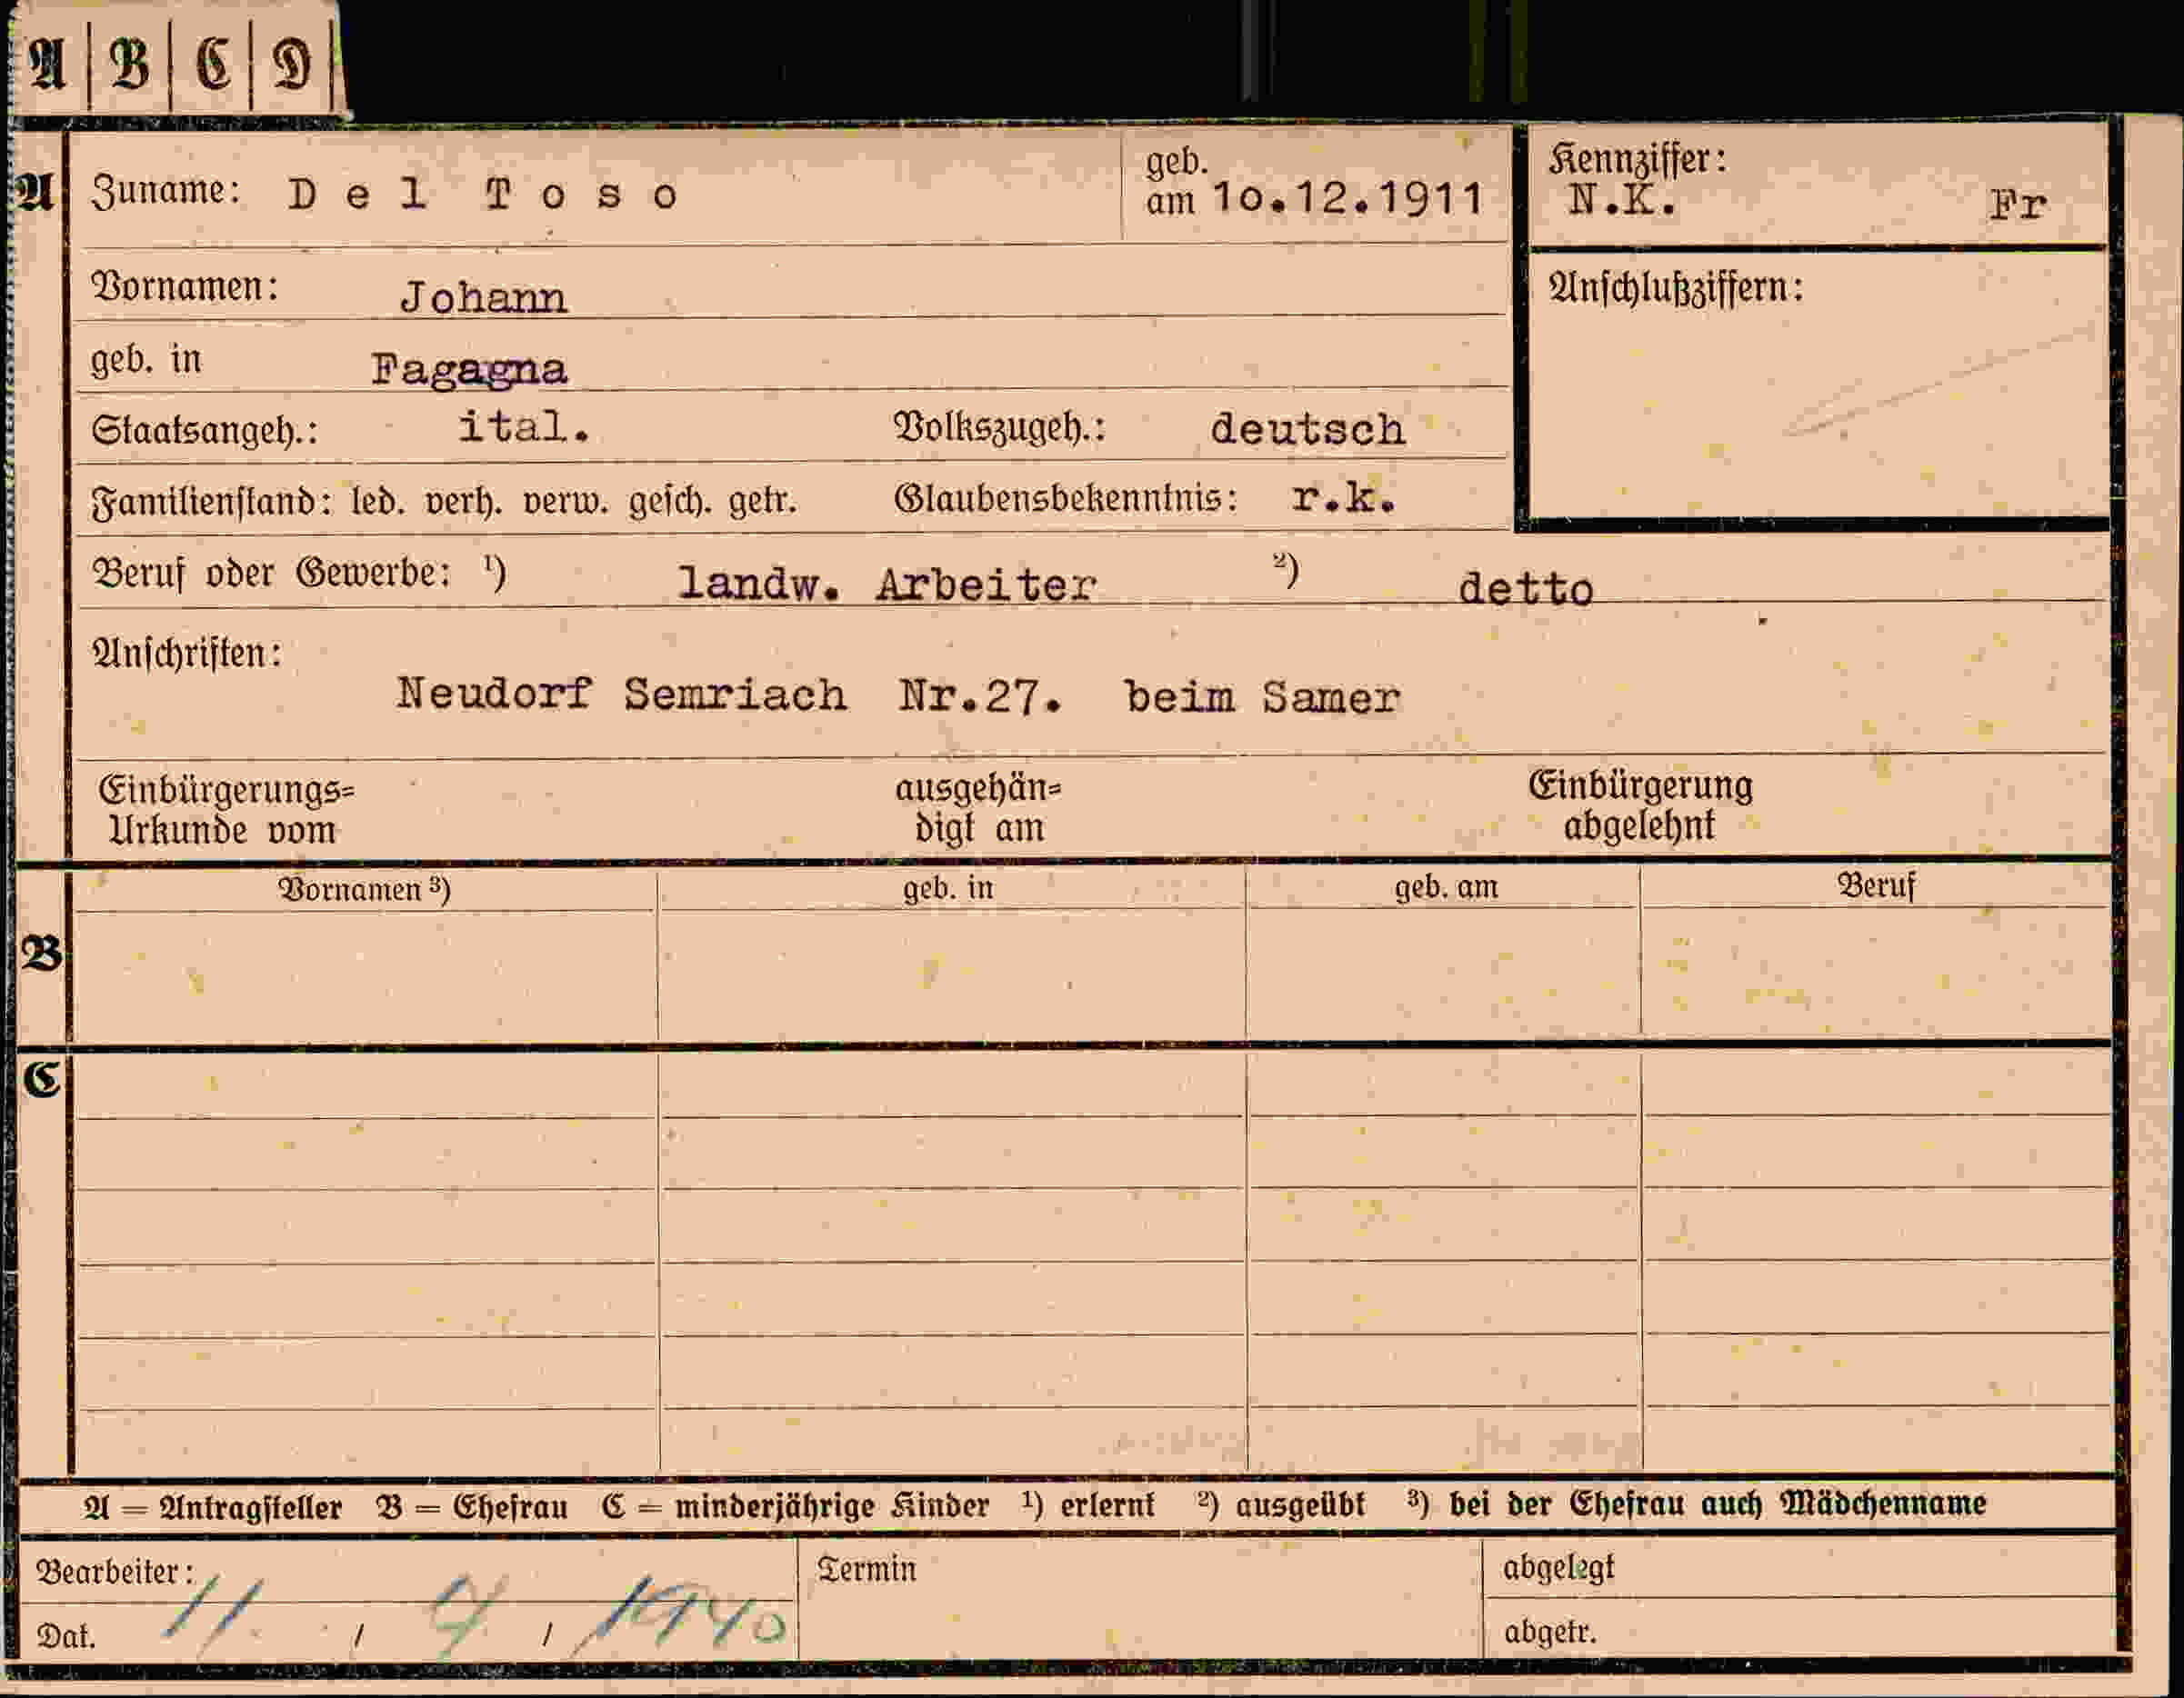 A | B | C | D |
A Zuname: Del Toso geb. am 10.12.1911 Kennziffer: N.K. Fr
Vornamen: Johann Anschlußziffern:
geb. in Fagagna
Staatsangeh.: ital. Volkszugeh.: deutsch
Familienstand: led. verh. verw. gesch. getr. Glaubensbekenntnis: r.k.
Beruf oder Gewerbe: ¹) landw. Arbeiter ²) detto
Anschriften:
Neudorf Semriach Nr.27. beim Samer
Einbürgerungs= ausgehän= Einbürgerung
Urkunde vom digt am abgelehnt
Vornamen ³) geb. in geb. am Beruf
B
C
A = Antragsteller B = Ehefrau C = minderjährige Kinder ¹) erlernt ²) ausgeübt ³) bei der Ehefrau auch Mädchenname
Bearbeiter: Termin abgelegt
Dat. 11. / / 1940 abgetr.